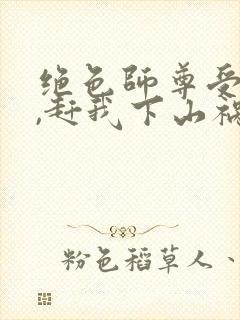 绝色师尊受
,赶我下山祸
粉色稻草人、